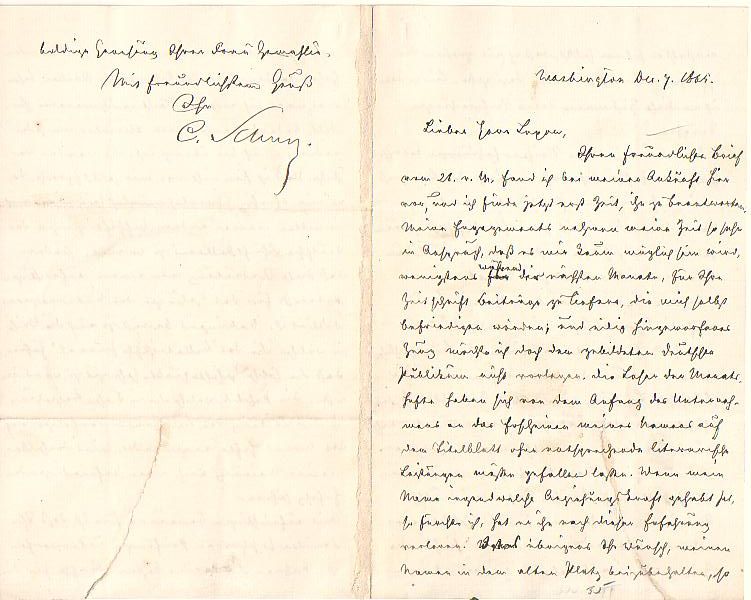 baldige Genesung Ihrer Frau Gemahlin.
Mit freundlichstem Gruß
Ihr
C. Schurz.
Washington Dec. 7. 1865.
Lieber Herr Lexow,
Ihren freundlichen Brief
vom 21. v. M. fand ich bei meiner Ankunft hier
vor, und ich finde jetzt erst Zeit, ihn zu beantworten.
Meine Engagements nehmen meine Zeit so sehr
in Anspruch, daß es mir kaum möglich sein wird,
wenigstens während der nächsten Monate, für Ihre
Zeitschrift Beiträge zu liefern, die mich selbst
befriedigen würden; und eilig hingeworfenes
Zeug möchte ich doch dem gebildeten deutschen
Publikum nicht vorlegen. Die Leser der Monats-
hefte haben sich von dem Anfang des Unterneh-
mens an das Erscheinen meines Namens auf
dem Titelblatt ohne entsprechende literarische
Leistungen müssen gefallen lassen. Wenn mein
Name irgendwelche Anziehungskraft gehabt hat,
so fürchte ich, hat er sie nach dieser Erfahrung
verloren. übrigens Ihr Wunsch, meinen
Namen in dem alten Platz beizubehalten, so